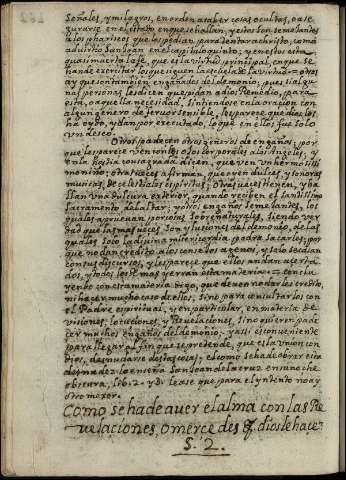 señales, y milagros, en orden a saber cosas ocultas, o a se
gurarse en el estado en que se hallan, y estos son semejantes
a los phariseos que los pedian, para tratar a christo, como
advirtio San Joan en el capitulo quinto; y en estos esta
quasi muerta la fe, que es la virtud prinsipal, en que se
han de exercitar los que siguen la escuela de la virtud = otros
ay que son tambien engañados del demonio; pues si algu
nas personas les dicen que pidan a dios Remedio, para
esta, o aquella necesidad, sintiendose en la oracion con
algun genero de fervor sensible, les parece que dios los
ha oydo, y dan por executado, lo que en ellos fue solo
un deseo.
Otros padecen otros generos de engaños, por
que les parece ven con los ojos del cuerpo a los Angeles, y
en la hostia consagrada dicen, que ven un hermosissi
mo niño; otras veces afirman, que oyen dulces, y sonoras
musicas, de celestiales espiritus; Otras veces tienen, y ha
llan una dulcura exterior, quando reciben el santissimo
sacramento del altar; y otros engaños semejantes, los
quales aprueban por cosas sobrenaturales, siendo ver
dad que las mas veces, son ylusiones del demonio, de las
quales solo la divina misericordia, podra sacarles; por
que no dan credito a los consejos agenos, y solo se guian
con sus discursos, y les parece que ellos andan acerta
dos, y todos los demas yerran en esta materia = conclu
yendo con esta materia digo, que deven no darles credito,
ni hacer mucho caso de ellos, sino para consultarlos con
el Padre espiritual, y en particular, en materia de
visiones, locuciones, y Revelaciones, sino quieren pade
cer muchos engaños del demonio; y assi es conveniente
para llegar al fin que se pretende, que es la union con
dios, desnudarse destas cosas; el como se ha de obrar esta
desnudez lo enseña San Joan de la cruz en su noche
obscura, lib. 2. y 8. lease que para el yntento no ay
otro mexor.
Como se ha de aver el alma con las Re
velaciones, o mercedes q dios le hace
§. 2.